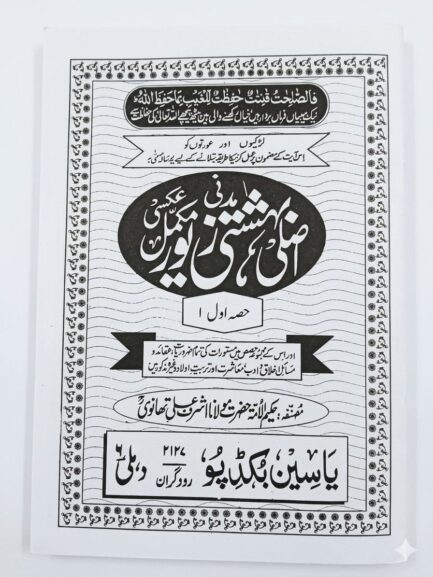 فَالصّٰلِحٰتُ قٰنِتٰتٌ حٰفِظٰتٌ لِّلْغَیْبِ بِمَا حَفِظَ اللّٰهُ
نیک بیبیاں فرماں بردار ہیں خیال رکھنے والی ہیں پیٹھ پیچھے اللہ تعالیٰ کی حفاظت سے
لڑکیوں اور عورتوں کو
اس آیت کے مضمون پر عمل کرنیکا طریقہ بتلانے کے لیے یہ رسالہ مسمّٰی بہ
اصلی مدنی بہشتی زیور مکمل عکسی
حصہ اول ۱
اور اس کے مجموعہ حصص میں مستورات کی تمام ضروریات عقائد و
مسائل اخلاق و ادب معاشرت اور تربیت اولاد وغیرہ مذکور ہیں
مصنّفہ: حکیم الامۃ حضرت مولانا اشرف علی تھانوی
یاسین بکڈپو، ۲۱۲۷ رودگران دہلی ۶